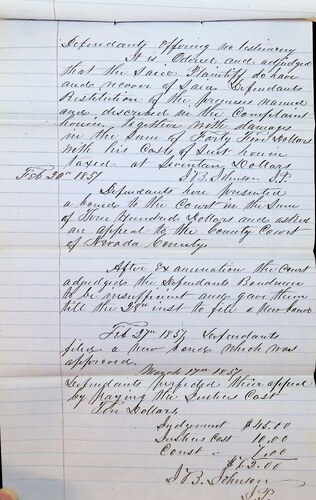 Defendants offering no testimony
It is Ordered and adjudged
that the said Plaintiff do have
and recover of said Defendants
Restitution of the premises named
and described in the Complaint
herein, together with damages
in the sum of Forty Five Dollars
with his Costs of suit herein
taxed at Seventeen Dollars
J B. Johnson J.P.
Feb. 20th 1857
Defendants here presented
a bond to the Court in the Sum
of Hundred Dollars and asked
an appeal to the County Court
of Nevada County.
After Examination the Court
adjudged the Defendants Bondsmen
to be insufficient and gave them
till the 28th inst to file a New bond
Feby 27th 1857 Defendants
filed a new bond which was
approved.
March 1857
Defendants perfected their appeal
by paying the Justices Cost
Ten Dollars,
Judgment $45.00
Justices Cost 10.00
Const. 7.00
J B. Johnson
J.P.